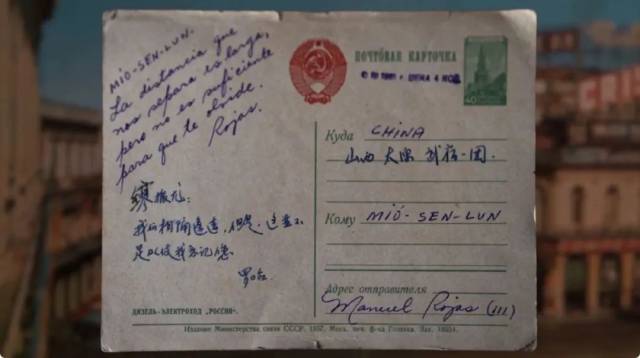 MIO-SEN-LUN.
La distancia que
nos separa es larga,
pero no es suficiente
para que te olvide.
Rojas.
振龙:
我们相隔遥远,但是,这並不
足以使我忘记您
罗哈
ДИЗЕЛЬ-ЭЛЕКТРОХОД „РОССИЯ".
ПОЧТОВАЯ КАРТОЧКА
ЦЕНА 4 КОП.
40
Куда CHINA
山西太原
Кому MIÓ-SEN-LUN
Адрес отправителя
Manuel Rojas (III)
Издание Министерства связи СССР. 1957.